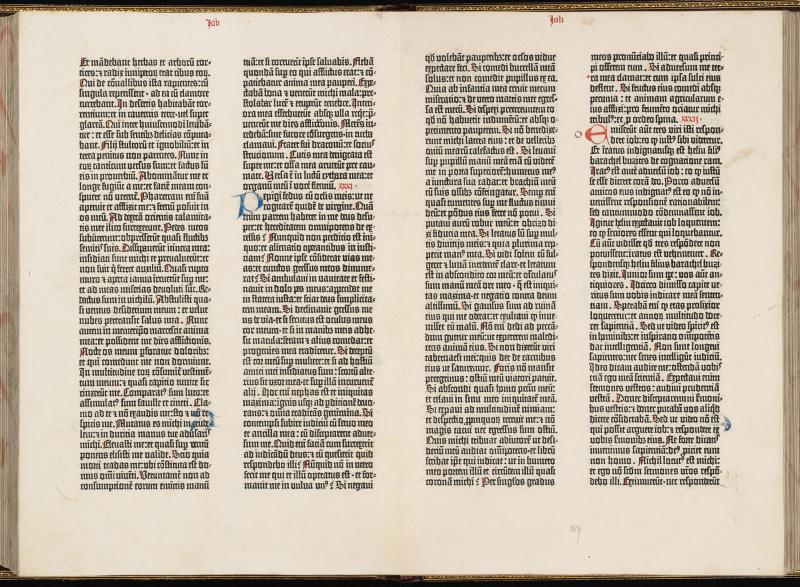 Job
Et mādebant herbas et arborū cor-
tices: et radix iuniperorum erat cibus eorum.
Qui de cōuallibus ista rapientes: cū
singula reperissent · ad ea cū clamore
currebant. In desertis habitabāt tor-
rentium: et in cauernis terre vel super
glaream. Qui inter huiuscemodi letabā-
tur: et esse sub sentibus delicias cōputa-
bant. Filij stultorū et ignobiliū: et in
terra penitus non parentes. Nunc in
eorum canticum versus sum: et factus sū
eis in prouerbiū. Abominātur me et
longe fugiūt a me: et faciē meam con-
spuere nō verent. Pharetram enī suā
aperuit et afflixit me: et frenū posuit in
os meū. Ad dexterā orientis calamita-
tes mee ilico surrexerunt. Pedes meos
subūerterunt: et oppresserūt quasi fluctibs
semitis suis. Dissipauerūt itinera mea:
insidiati sunt michi et preualuerūt: et
non fuit qui ferret auxiliū. Quasi rupto
muro et aperta ianua irruerūt sup me:
et ad meas miserias deuoluti sūt. Re-
dactus sum in nichilū. Abstulisti qua-
si ventus desiderium meum: et velut
nubes pertransiit salus mea. Nunc
autem in memetipso marcescit anima
mea: et possident me dies afflictionis.
Nocte os meum pforatur doloribs: et
qui comedunt me non dormiunt.
In multitudine eorum cōsumit vestimē-
tum meum: et quasi capitio tunice suc-
cinxerūt me. Comparatus sum luto: et
assimilatus sum fauille et cineri. Cla-
mo ad te et nō exaudis me: sto et nō re-
spicis me. Mutatus es michi in crude-
lem: et in duricia manus tue aduersaris
michi. Eleuasti me: et quasi sup ventū
ponens elisisti me valide. Scio quia
morti trades me: ubi cōstituta est do-
mus omī viuēti. Verumtamē non ad
consumptionē eorum emittis manū
tuā: et si corruerīt ipse saluabis. Flebā
quondā sup eo qui afflictus erat: et cō-
patiebatur anima mea pauperi. Expe-
ctabā bona et venerūt michi mala: pre-
stolabar lucē et eruperūt tenebre. Interi-
ora mea efferbuerūt absque ulla requie: pre-
uenerūt me dies afflictiōis. Merens in-
cedebā sine furore: cōsurgens in turba
clamaui. Frater fui draconū: et socius
strucionum. Cutis mea denigrata est
super me: et ossa mea aruerūt pre cau-
mate. Versa ē in luctū cythara mea: et
organū meū ī vocē flentiū. xxxi.
Pepigi fedus cū oculis meis: ut ne
cogitarē quidē de virgine. Quā
enim partem haberet in me deus desu-
per: et hereditatem omnipotens de ex-
celsis? Nunquid non perditio est ini-
quo: et alienatio operantibus in iusti-
ciam? Nonne ipse cōsiderat vias me-
as: et cunctos gressus meos dinume-
rat? Si ambulaui in vanitate et festi-
nauit in dolo pes meus: appendat me
in statera iusta: et sciat deus simplicita-
tem meam. Si declinauit gressus me-
us de via: et si secutus est oculus meus
cor meum · et si in manibs meis adhe-
sit macula: seram et alius comedat: et
progenies mea eradicetur. Si deceptū
est cor meū sup muliere: et si ad hostiū
amici mei insidiatus sum: scortū alte-
rius sit uxor mea: et sup illā incuruent
alij. Hoc enī nephas est: et iniquitas
maxima: ignis usque ad pditionē deuo-
rans: et omnia eradicās genimina. Si
contempsi subire iudiciū cū seruo meo
et ancilla mea: cū disceptarent aduer-
sum me. Quid enī faciā cum surrexerit
ad iudicādū deus: et cū quesierit quid
respondebo illi? Nūquid nō in utero
fecit me qui et illū operatus est · et for-
mauit me in vulua unus? Si negaui
Job
quod volebāt pauperibs: et oculos vidue
expectare feci. Si comedi buccellā meā
solus: et non comedit pupillus ex ea.
Quia ab infantia mea creuit mecum
miseratio: et de utero matris mee egres-
sa est mecū. Si despexi pretereuntem eo
quod nō habuerit indumētū: et absque o-
perimento pauperem. Si nō benedixe-
runt michi latera eius: et de velleribs
ouiū mearū calefactus est. Si leuaui
sup pupillū manū meā: etiā cū viderē
me in porta superiorē: humerus meus
a iunctura sua cadat: et brachiū meū
cū suis ossibs cōfringatur. Semp enī
quasi tumentes sup me fluctus timui
deū: et pōdus eius ferre nō potui. Si
putaui aurū robur meū: et obrizo di-
xi fiducia mea. Si letatus sū sup mul-
tis diuitijs meis: et quia plurima rep-
perit manus mea. Si vidi solem cū ful-
geret et lunā incedentē clare · et letatum
est in abscōdito cor meū: et osculatus
sum manū meā ore meo · que est iniqui-
tas maxima: et negatio contra deum
altissimū. Si gauisus sum ad ruinā
eius qui me oderat: et exultaui que inue-
nisset eū malū. Nō enī dedi ad peccā-
dum guttur meū: ut expeterem maledi-
cens animā eius. Si non dixerūt viri
tabernaculi mei: quis det de carnibus
eius ut saturemur. Foris nō mansit
peregrinus: ostiū meū viatori patuit.
Si abscondi quasi homo peccatū meū:
et celaui in sinu meo iniquitatē meā.
Si expaui ad multitudinē nimiam:
et despectio propinquorū terruit me: et nō
magis tacui nec egressus sum ostiū.
Quis michi tribuat adiutorē ut desi-
deriū meū audiat omīpotens: et librū
scribat ipse qui iudicat: ut in humero
meo portem illū: et circūdem illū quasi
coronā michi? Per singulos gradus
meos pronūciabo illū: et quasi princi-
pi offeram eum. Si aduersum me ter-
ra mea clamat: et cum ipsa sulci eius
deflent. Si fructus eius comedi absque
pecunia: et animam agricolarum e-
ius afflixi: pro frumēto oriatur michi
tribulus: et pro ordeo spina. xxxii.
Omiserūt autem tres viri isti respon-
dere iob: eo quod iustus sibi videretur.
Et iratus indignatusque est helyu filius
barachel buzites de cognatione ram.
Iratus est autē aduersū iob: eo quod iustū
se esse diceret coram deo. Porro aduersū
amicos eius indignatus est: eo quod nō in-
uenissent responsionē rationabilem:
sed tantummodo cōdēnassent iob.
Igitur helyu expectauit iob loquentem:
eo quod seniores essent qui loquebantur.
Cū autē vidisset quod tres respōdere non
potuissent: iratus est vehementer. Re-
spondensque helyu filius barachel buzi-
tes dixit. Iunior sum tpe: vos autē an-
tiquiores. Idcirco dimisso capite ve-
ritus sum vobis indicare meā senten-
tiam. Sperabā enī quod etas prolixior
loqueretur: et annorū multitudo doce-
ret sapientiā. Sed ut video spiritus est
in hominibs: et inspiratio omīpotētis
dat intelligentiā. Non sunt longeui
sapientes: nec senes intelligūt iudiciū.
Ideo dicam audite me: ostendā vobis
etiā ego meā scientiā. Expectaui enim
sermones vestros: audiui prudentiā
vestrā. Donec disceptaremini sermoni-
bus vestris: et donec putabā vos aliquid
dicere cōsiderabā. Sed ut video nō est
qui possit arguere iob: et respondere ex
vobis sermonibs eius. Ne forte dicatis
inuenimus sapientiā: deus piecit eum
non homo. Nichil locutus est michi:
et ego nō scdm sermones vestros respō-
debo illi. Extimuerūt · nec responderūt